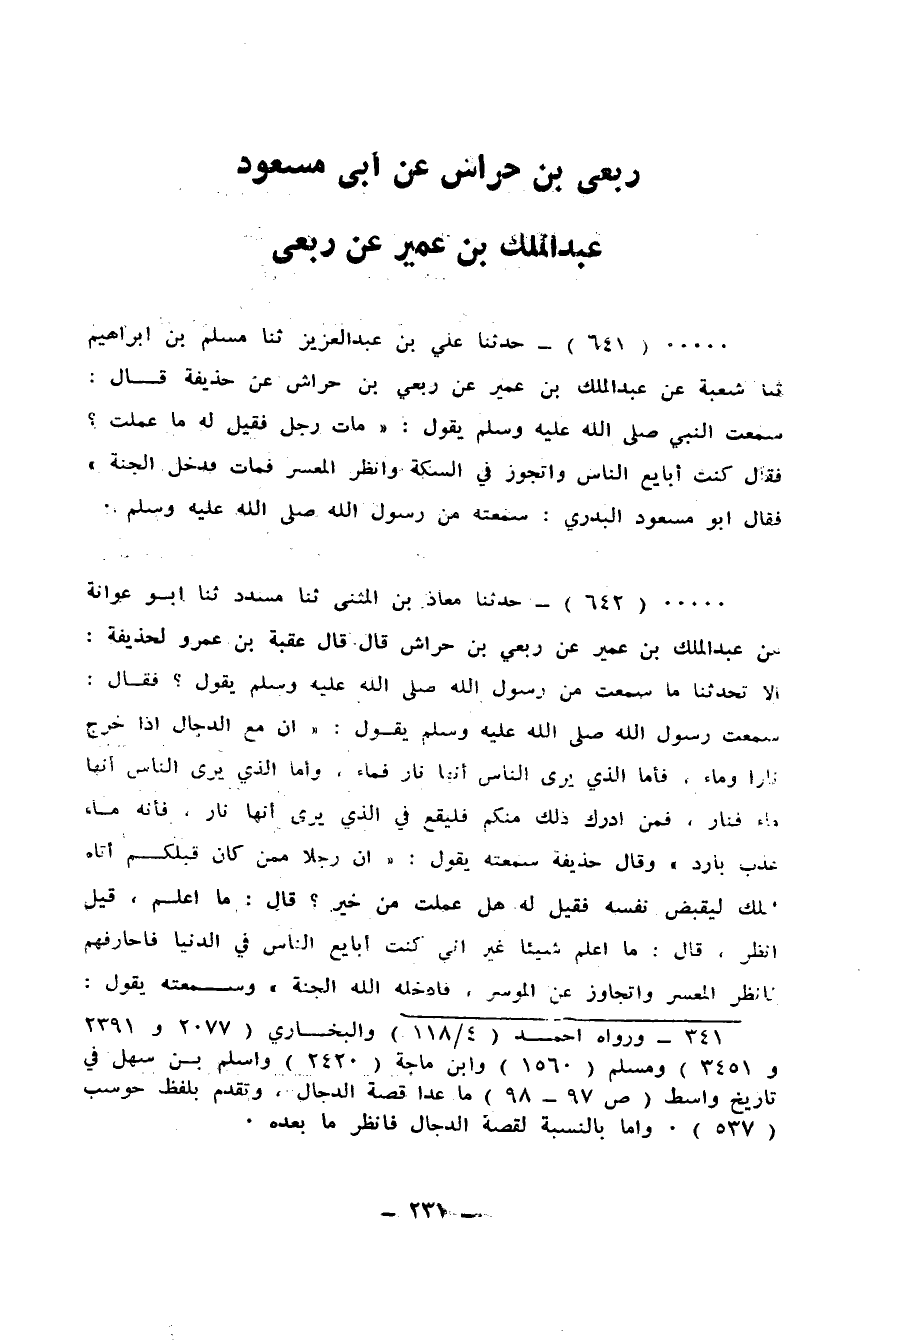 ربعي بن حراش عن أبي مسعود
عبدالملك بن عمير عن ربعي
٠٠٠٠٠ ( ٦٤١ ) ـ حدثنا علي بن عبدالعزيز ثنا مسلم بن ابراهيم
ثنا شعبة عن عبدالملك بن عمير عن ربعي بن حراش عن حذيفة قـــال :
سمعت النبي صلى الله عليه وسلم يقول : « مات رجل فقيل له ما عملت ؟
فقال كنت أبايع الناس واتجوز في السكة وانظر المعسر فمات فدخل الجنة »
فقال ابو مسعود البدري : سمعته من رسول الله صلى الله عليه وسلم ٠
٠٠٠٠٠ ( ٦٤٢ ) ـ حدثنا معاذ بن المثنى ثنا مسدد ثنا ابــو عوانة
عن عبدالملك بن عمير عن ربعي بن حراش قال قال عقبة بن عمرو لحذيفة :
الا تحدثنا ما سمعت من رسول الله صلى الله عليه وسلم يقول ؟ فقــال :
سمعت رسول الله صلى الله عليه وسلم يقــول : « ان مع الدجال اذا خرج
نارا وماء ، فأما الذي يرى الناس أنها نار فماء ، وأما الذي يرى الناس أنها
ماء فنار ، فمن ادرك ذلك منكم فليقع في الذي يرى أنها نار ، فأنه مــاء
عذب بارد » وقال حذيفة سمعته يقول : « ان رجلا ممن كان قبلكـــم أتاه
ملك ليقبض نفسه فقيل له هل عملت من خير ؟ قال : ما اعلــم ، قيل
انظر ، قال : ما اعلم شيئا غير اني كنت أبايع الناس في الدنيا فاحارفهم
فانظر المعسر واتجاوز عن الموسر ، فادخله الله الجنة » وســـمعته يقول :
٣٤١ ـ ورواه احمـــد ( ١١٨/٤ ) والبخــاري ( ٢٠٧٧ و ٢٣٩١
و ٣٤٥١ ) ومسلم ( ١٥٦٠ ) وابن ماجة ( ٢٤٢٠ ) واسلم بــن سهل في
تاريخ واسط ( ص ٩٧ ـ ٩٨ ) ما عدا قصة الدجال ، وتقدم بلفظ حوسب
( ٥٣٧ ) ٠ واما بالنسبة لقصة الدجال فانظر ما بعده ٠
ـ ٢٣١ ـ